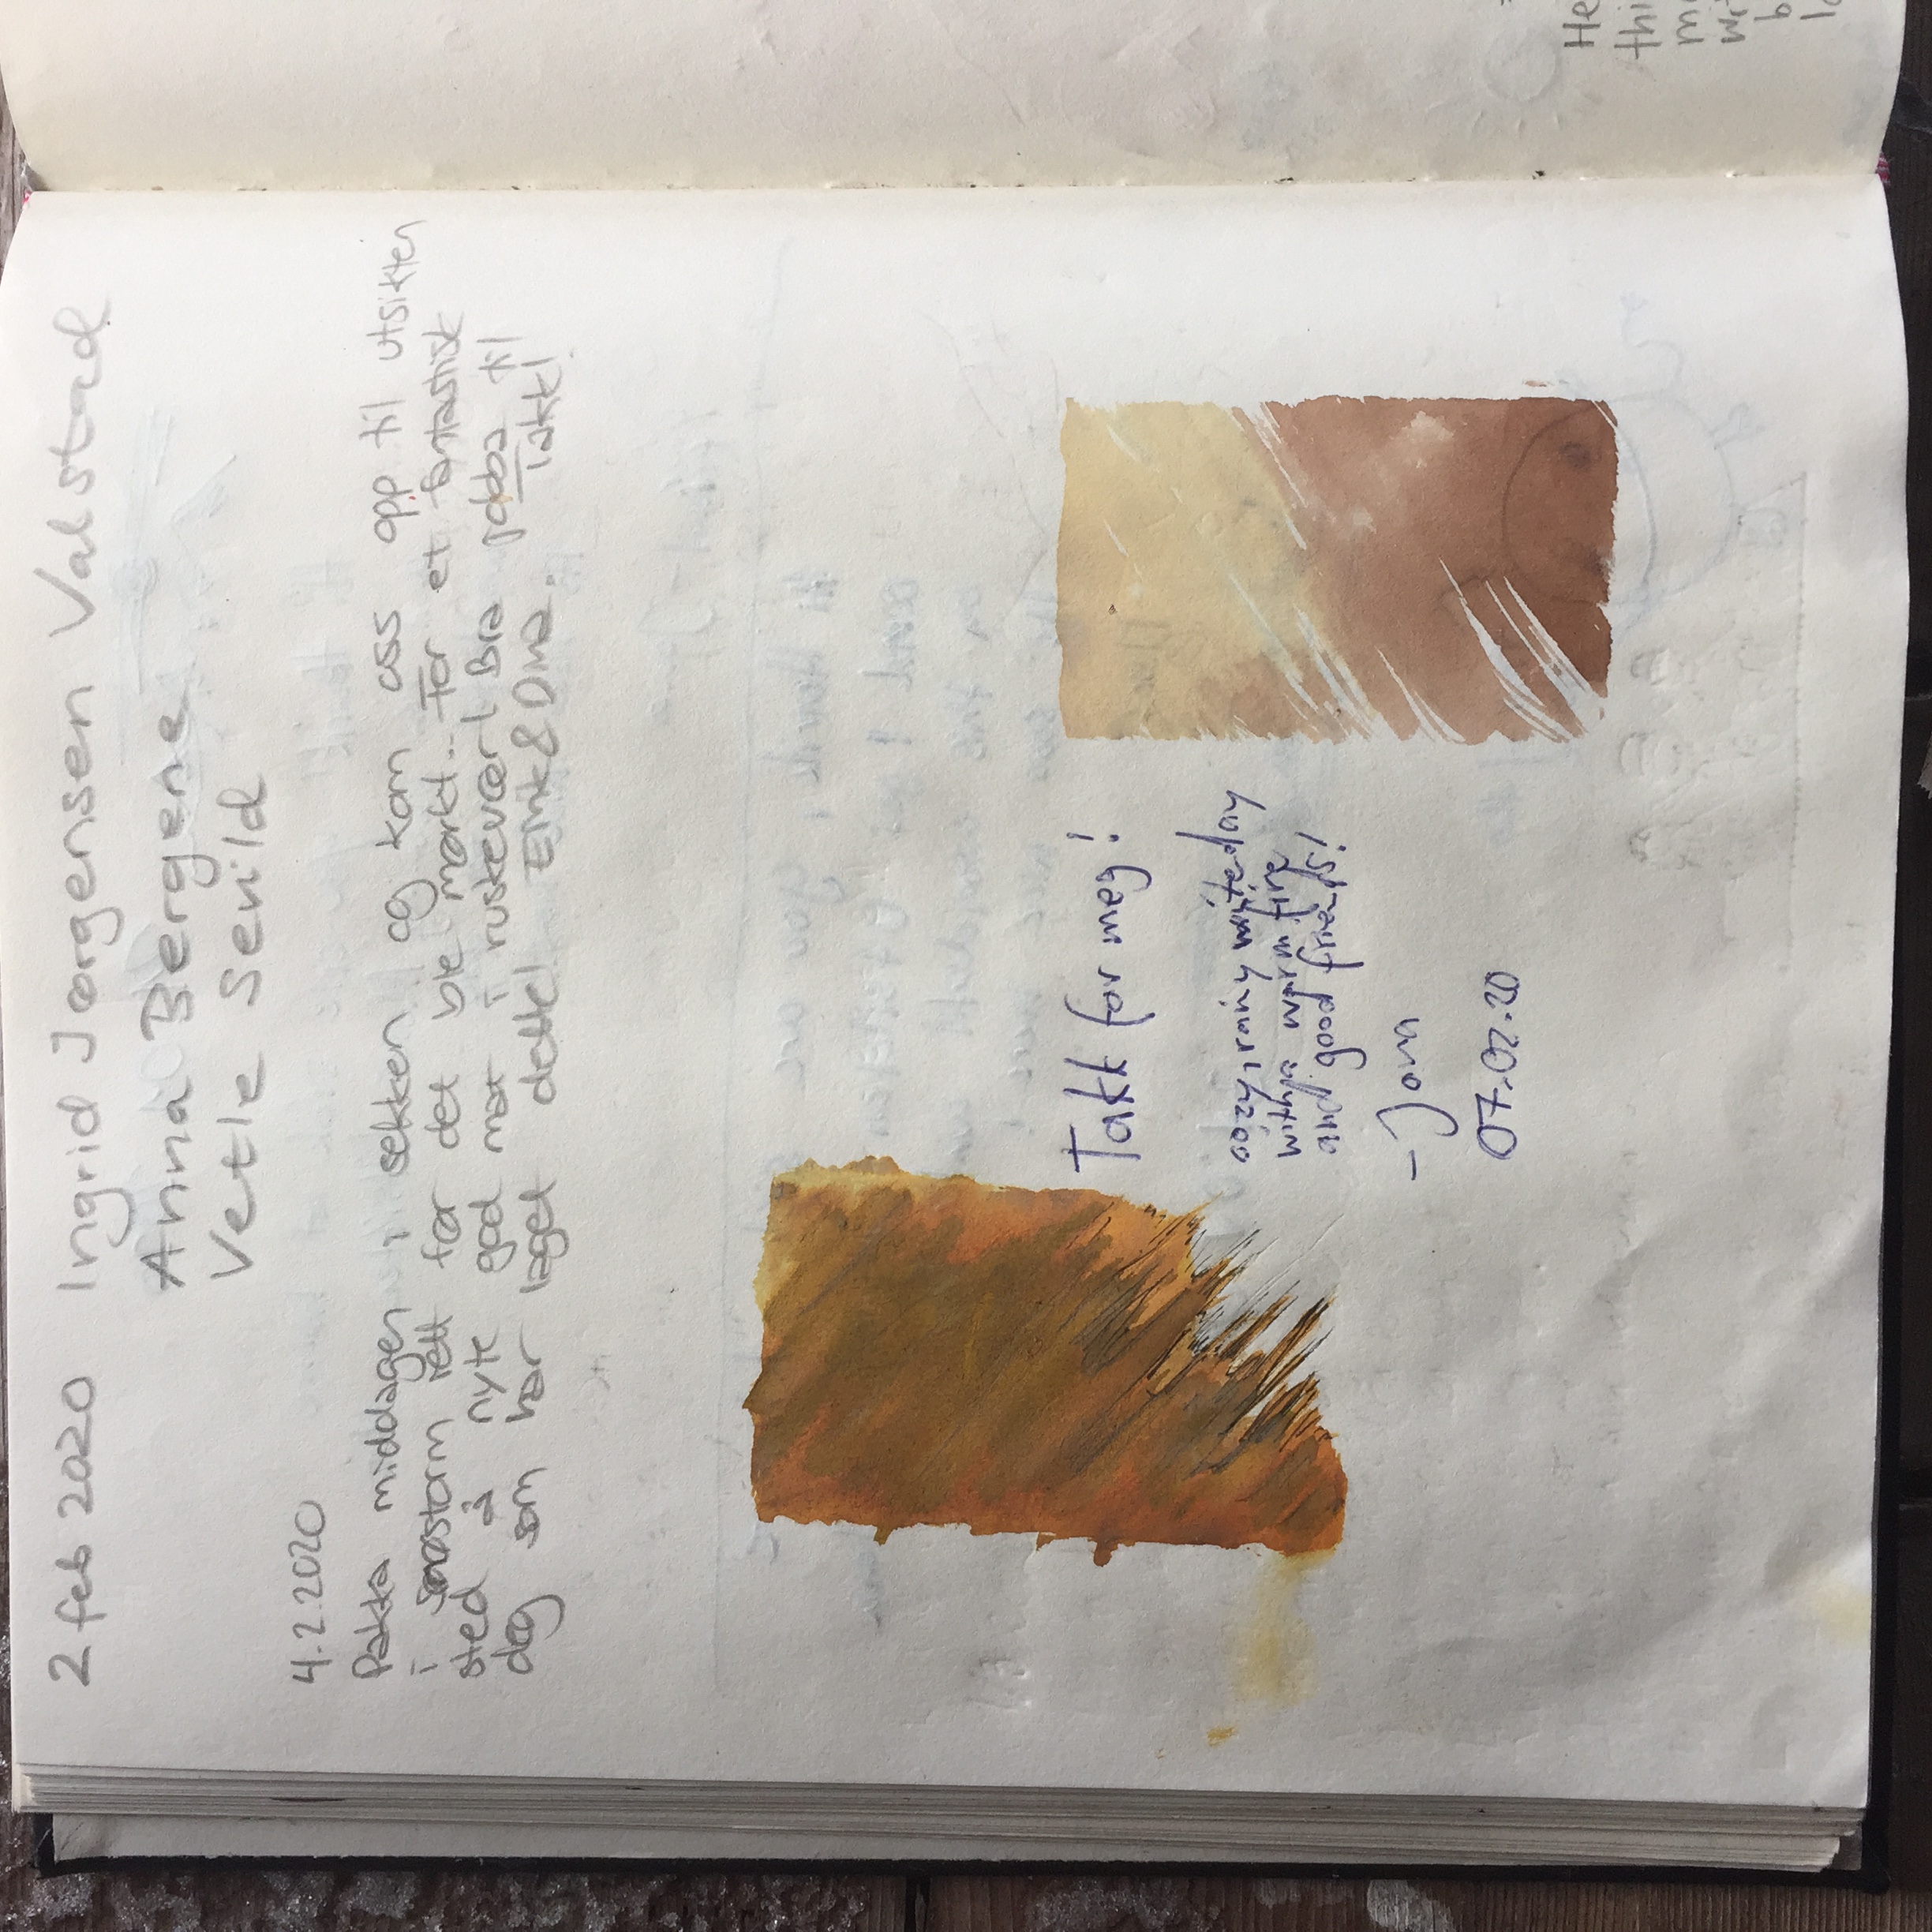 2 feb 2020 Ingrid Jørgensen Valstad
Anna Bergene
Vetle Sevild
4.2.2020
Pakka middagen i sekken og kom oss opp til utsikten
i snøstorm rett før det ble mørkt.. For et fantastisk
sted å nyte god mat i ruskevær! Bra jobba til
deg som har laget dette! Eirik & Dina. Takk!
Takk for meg!
cozy, rainy winterday
within warm fire
and good friends!
- Jom
07.02.20
He
thi